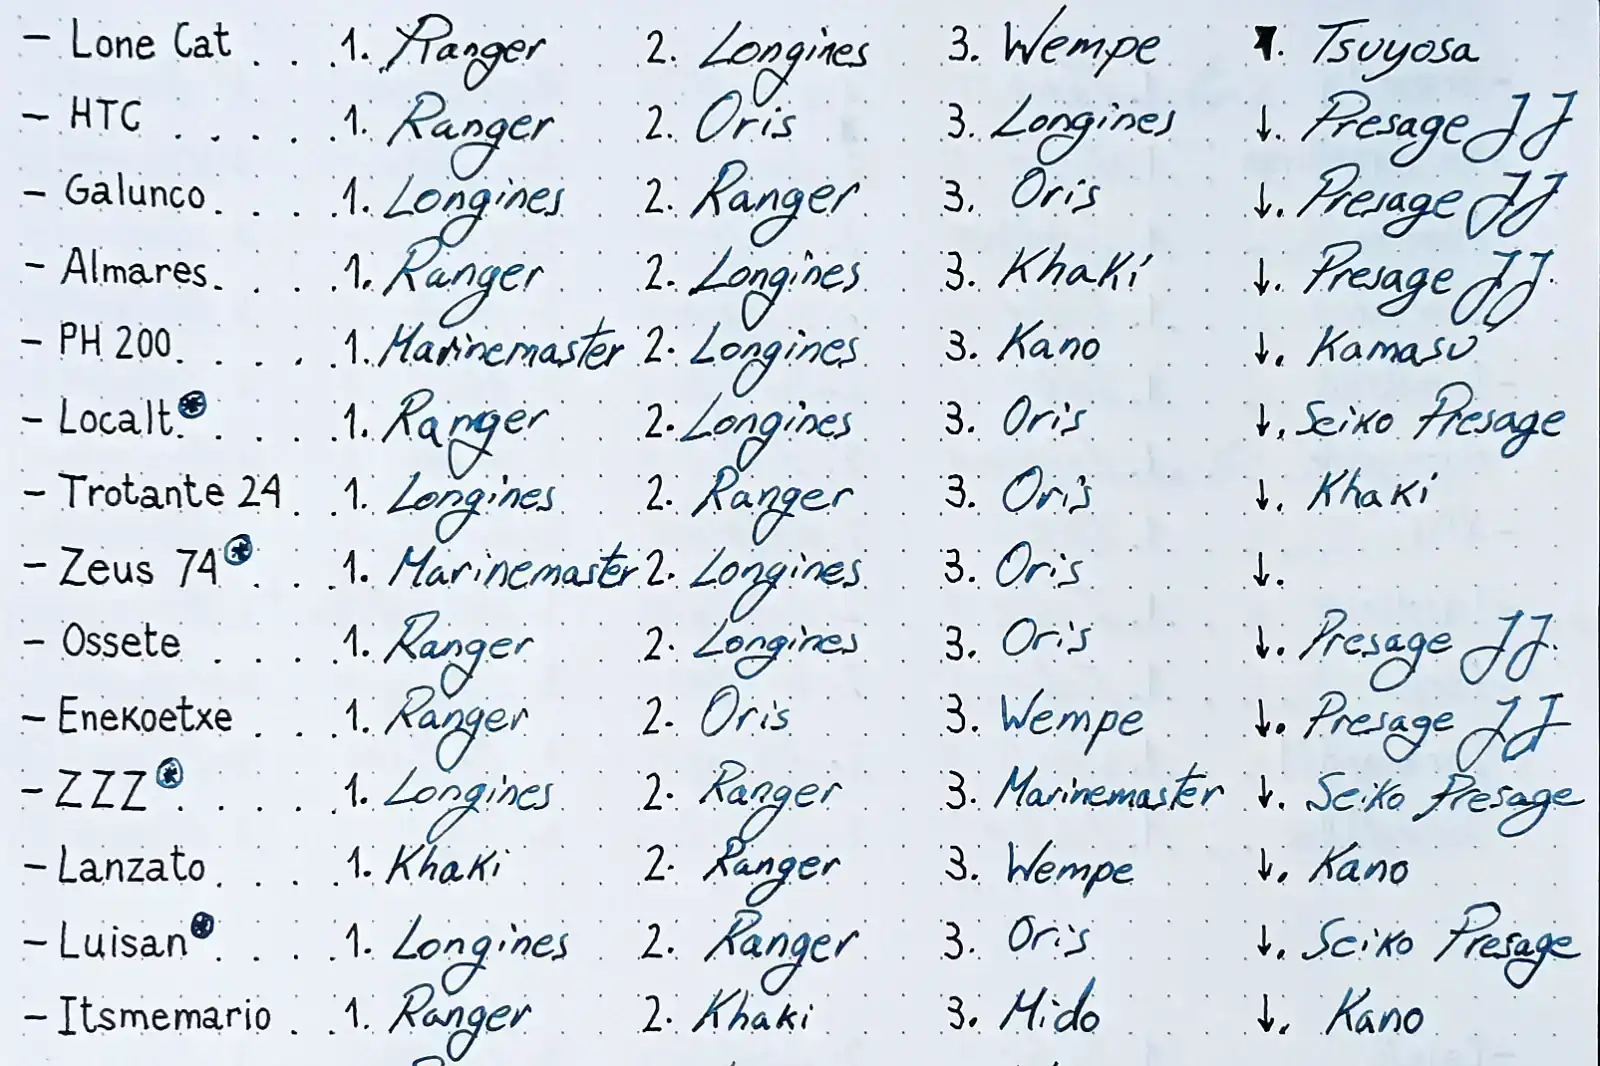 - Lone Cat . . . . 1. Ranger 2. Longines 3. Wempe . Tsuyosa
- HTC . . . . . 1. Ranger 2. Oris 3. Longines ↓. Presage JJ
- Galunco . . . . 1. Longines 2. Ranger 3. Oris ↓. Presage JJ
- Almares . . . . 1. Ranger 2. Longines 3. Khaki ↓. Presage JJ
- PH 200 . . . . . 1. Marinemaster 2. Longines 3. Kano ↓. Kamasu
- Localt ⊛ . . . . 1. Ranger 2. Longines 3. Oris ↓. Seiko Presage
- Trotante 24 . . 1. Longines 2. Ranger 3. Oris ↓. Khaki
- Zeus 74 ⊛ . . . 1. Marinemaster 2. Longines 3. Oris ↓.
- Ossete . . . . 1. Ranger 2. Longines 3. Oris ↓. Presage JJ
- Enekoetxe . . . 1. Ranger 2. Oris 3. Wempe ↓. Presage JJ
- ZZZ ⊛ . . . . . 1. Longines 2. Ranger 3. Marinemaster ↓. Seiko Presage
- Lanzato . . . . 1. Khaki 2. Ranger 3. Wempe ↓. Kano
- Luisan ⊛ . . . . 1. Longines 2. Ranger 3. Oris ↓. Seiko Presage
- Itsmemario . . 1. Ranger 2. Khaki 3. Mido ↓. Kano